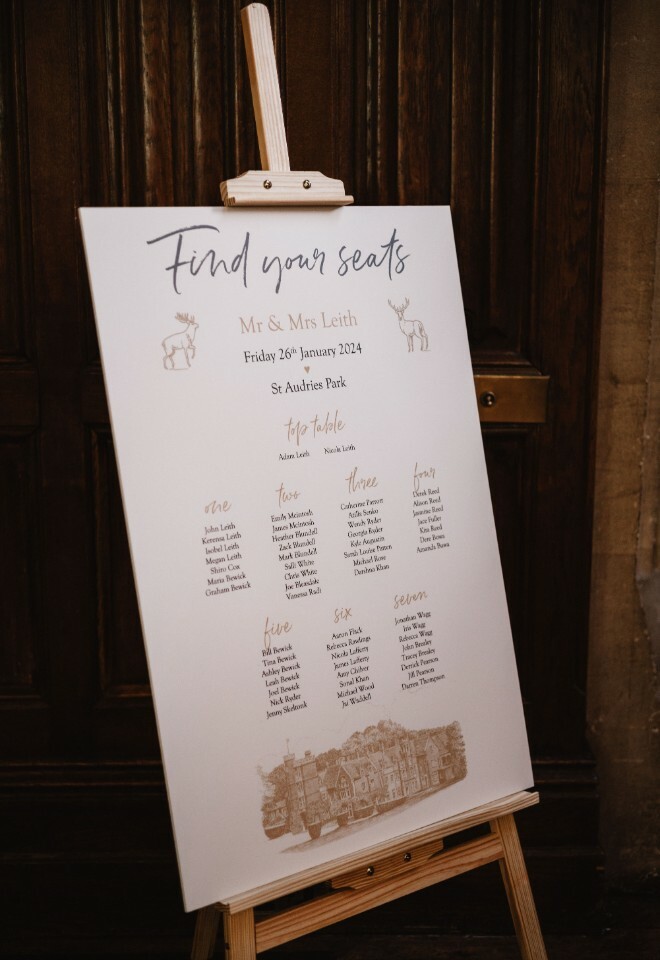 Find your seats
Mr & Mrs Leith
Friday 26th January 2024
St Audries Park
top table
Adam Leith Nicola Leith
one
John Leith
Kerensa Leith
Isobel Leith
Megan Leith
Shiro Cox
Maria Bewick
Graham Bewick
two
Emily Mcintosh
James Mcintosh
Heather Blundell
Zack Blundell
Mark Blundell
Salli White
Chris White
Joe Bleasdale
Vanessa
three
Catherine Patten
Wendy Ryder
Georgia Ryder
Kyle Augustin
Sarah Louise Patten
Michael Rose
Khan
four
Derek Reed
Alison Reed
Jasmine Reed
Jace Fuller
Kira Reed
Dave Bown
Amanda Bown
five
Bill Bewick
Tina Bewick
Ashley Bewick
Leah Bewick
Joel Bewick
Nick Ryder
Jenny
six
Aaron
Rebecca Rawlings
Nicola Lafferty
James Lafferty
Amy
Sonal Khan
Michael Wood
Jai Waddell
seven
Jonathan Wagg
Iris Wagg
Rebecca Wagg
John Bessley
Tracey Bessley
Derrick Pearson
Jill Pearson
Darren Thompson